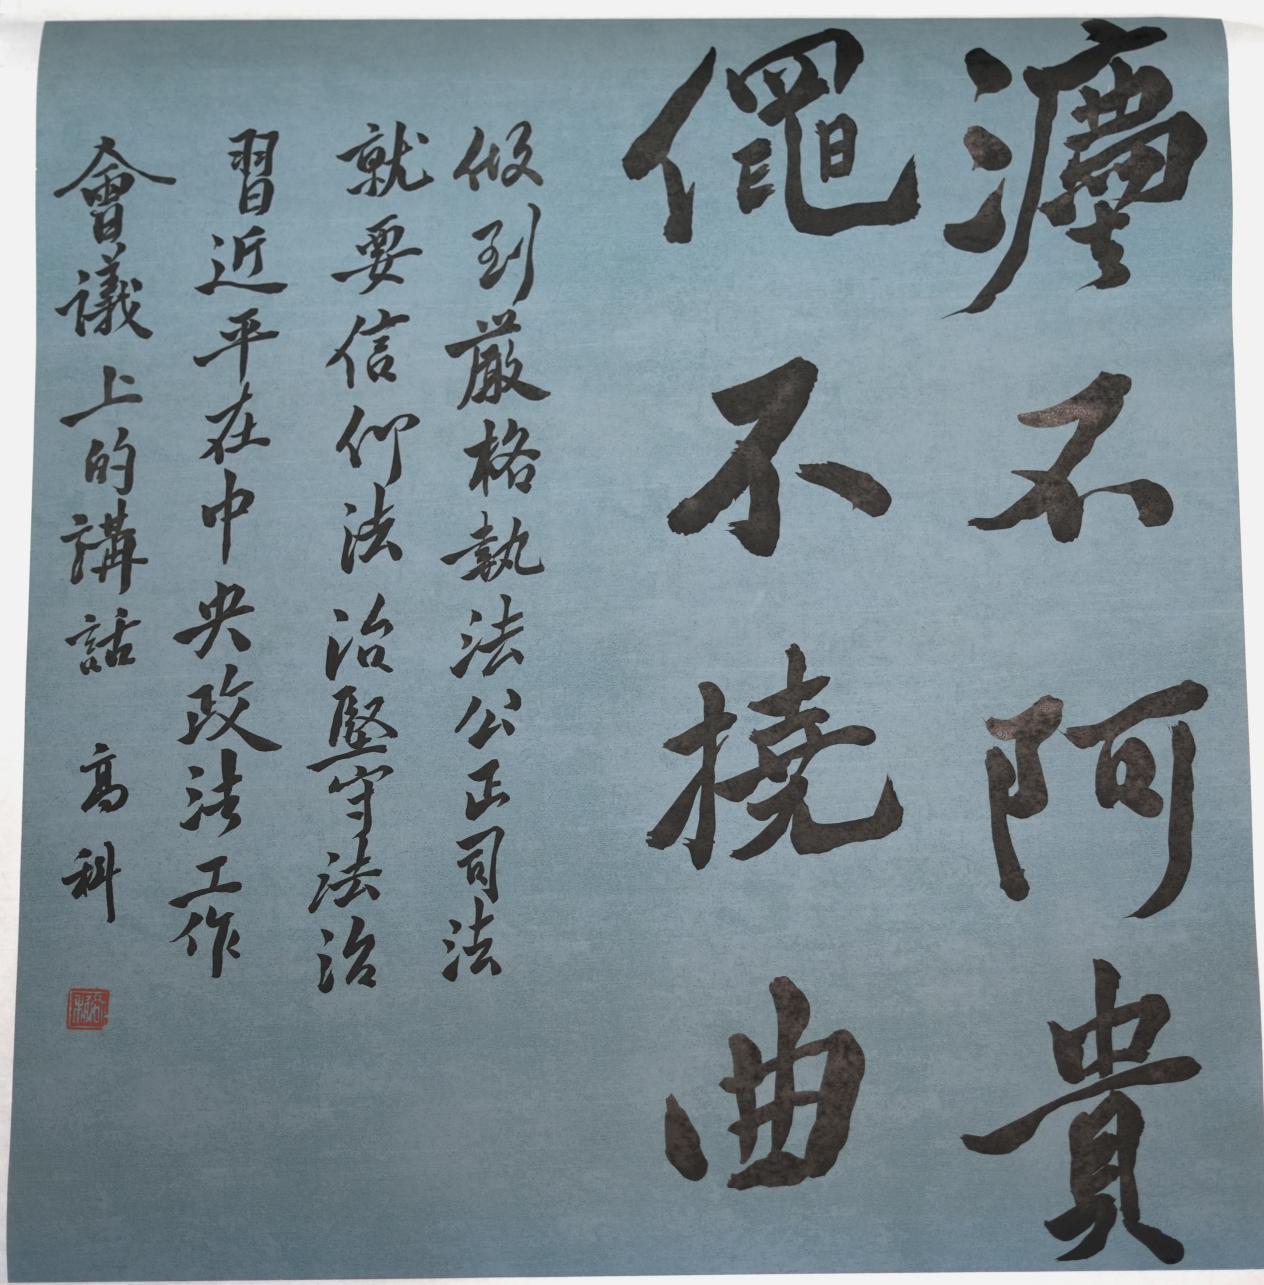 灋不阿貴
僶不撓曲
做到嚴格執法公正司法
就要信仰法治堅守法治
習近平在中央政法工作
會議上的講話 高科